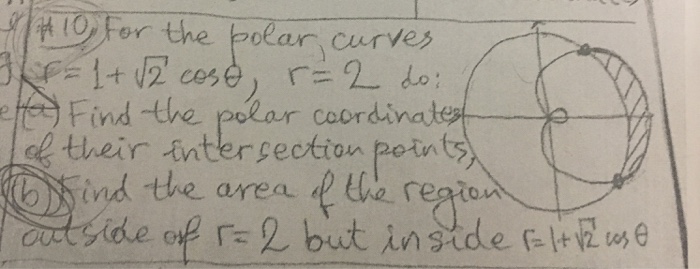 #10, For the polar, curves
r = 1 + √2 cos θ, r = 2 do:
(a) Find the polar coordinates
of their intersection points,
(b) Find the area of the region
outside of r = 2 but inside r = 1 + √2 cos θ